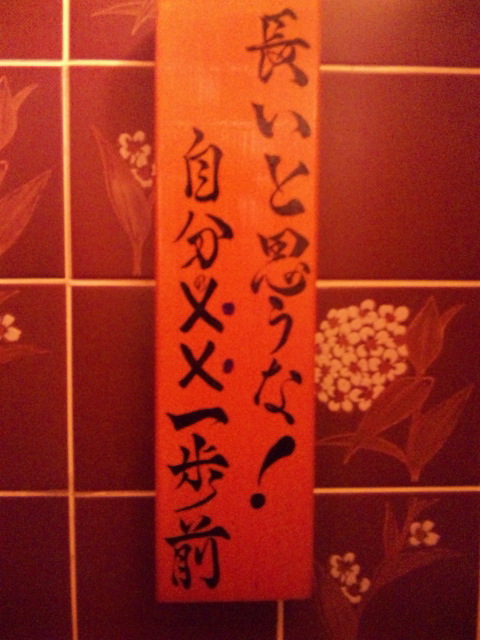 長いと思うな!
自分の××一歩前